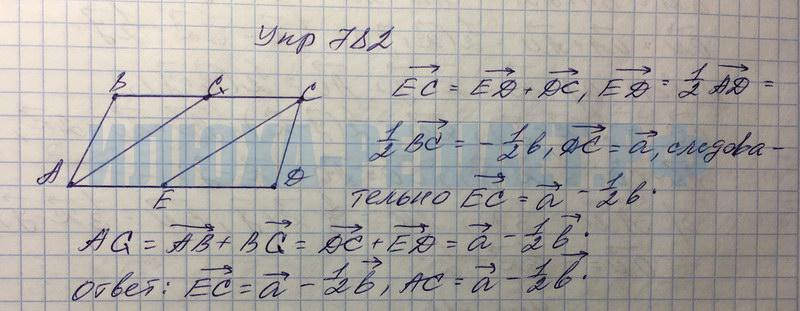 Упр 782
B G C
A E D
EC = ED + DC, ED = 1/2 AD =
1/2 BC = - 1/2 b, DC = a, следова-
тельно EC = a - 1/2 b.
AG = AB + BG = DC + ED = a - 1/2 b.
ответ: EC = a - 1/2 b, AC = a - 1/2 b.